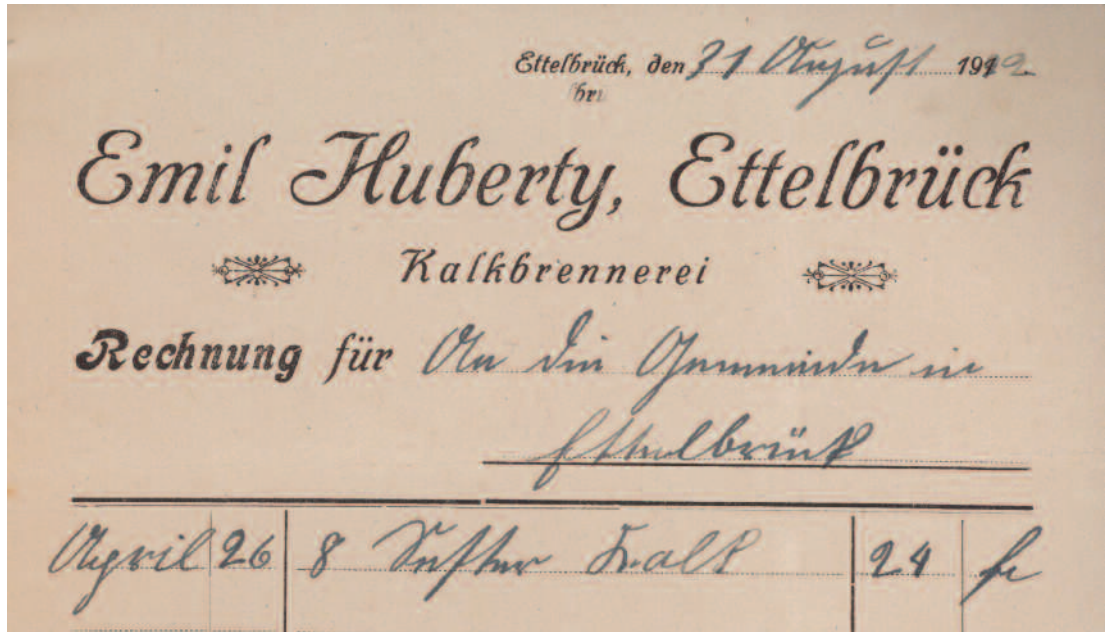 Ettelbrück, den 31 August 1912
brü
Emil Huberty, Ettelbrück
Kalkbrennerei
Rechnung für An die Gemeinde in
Ettelbrück
April 26 8 Sester Kalk 24 fr